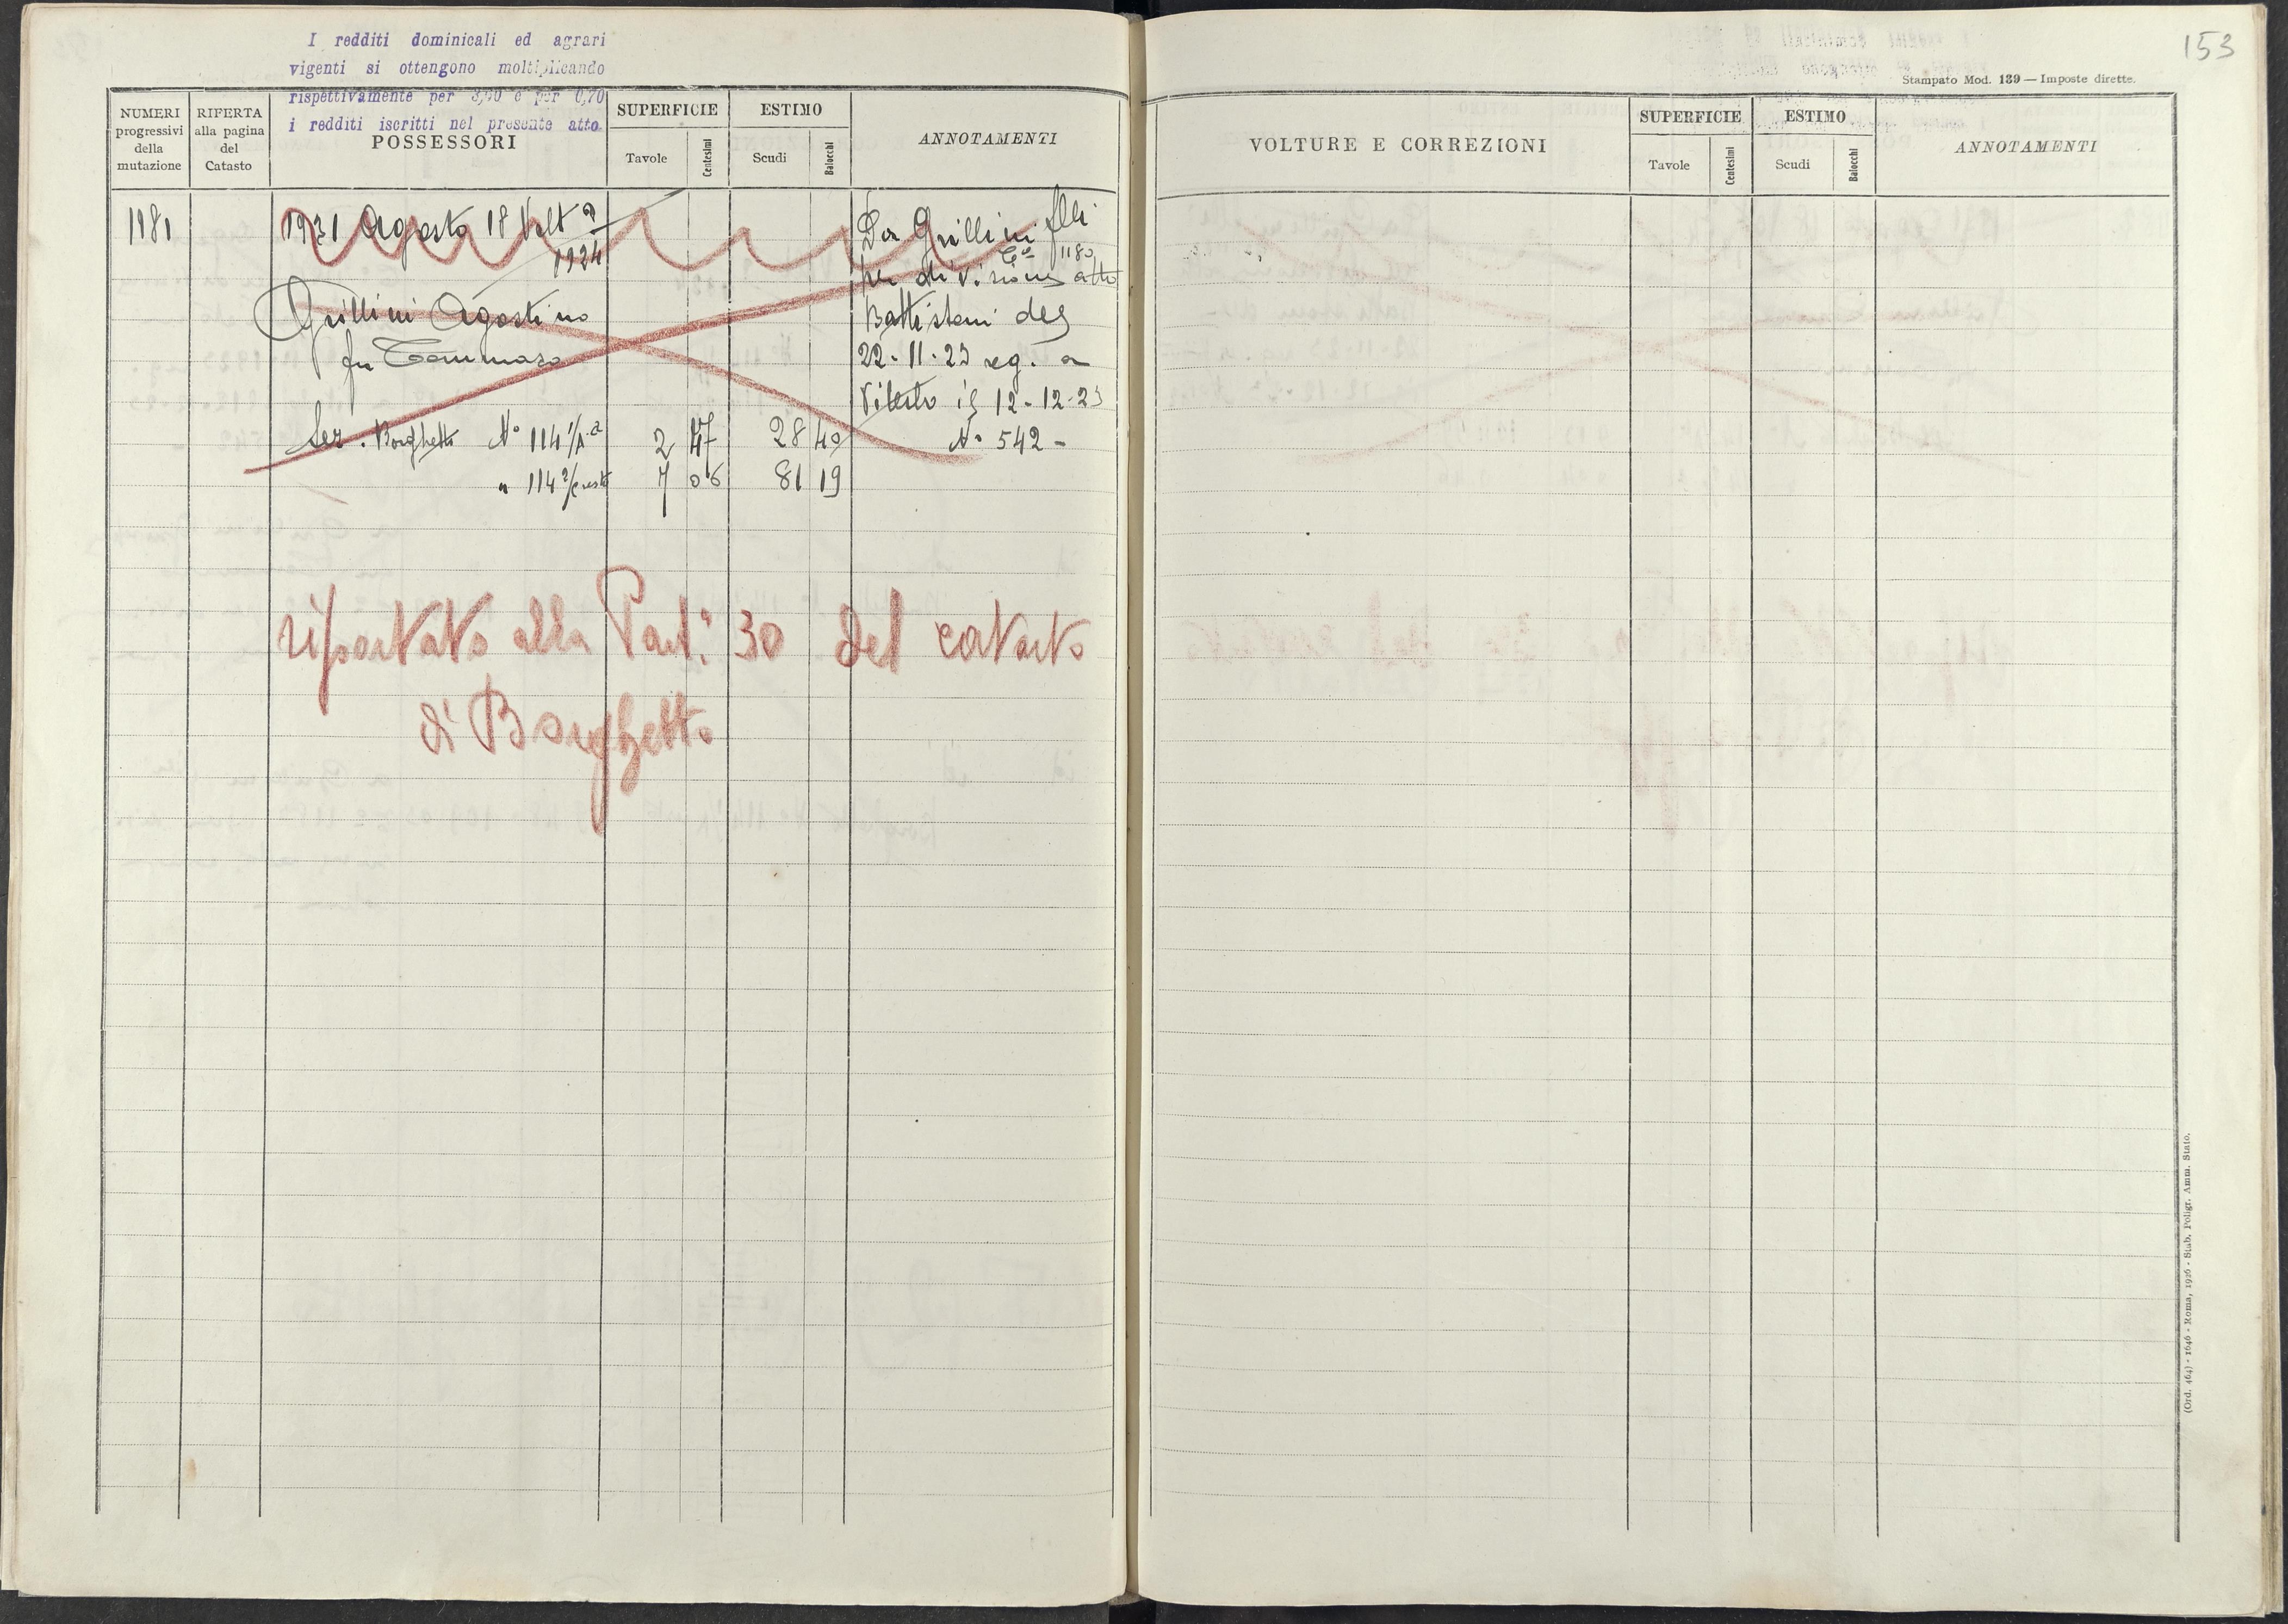 I redditi dominicali ed agrari
vigenti si ottengono moltiplicando
rispettivamente per 3,60 e per 0,70
i redditi iscritti nel presente atto.
NUMERI
progressivi
della
mutazione
RIFERTA
alla pagina
del
Catasto
POSSESSORI
SUPERFICIE
Tavole
Centesimi
ESTIMO
Scudi
Baiocchi
ANNOTAMENTI
1181
1931 Agosto 18 Volt a
1924
Grillini Agostino
fu Tommaso
Sez. Borghetto N° 114 1/p.a 2 47 28 40
" 114 2/resto 7 06 81 19
Da Grillini flli
1180
per divisione atto
Battistoni del
22-11-23 reg. a
Viterbo il 12-12-23
N° 542-
riportato alla Part.a 30 del catasto
di Borghetto
153
Stampato Mod. 139 — Imposte dirette.
VOLTURE E CORREZIONI
SUPERFICIE
Tavole
Centesimi
ESTIMO
Scudi
Baiocchi
ANNOTAMENTI
(Ord. 464) - 1646 - Roma, 1926 - Stab. Poligr. Amm. Stato.